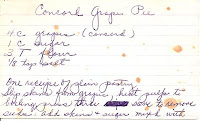 Concord Grape Pie
4 C grapes (Concord)
1 C sugar
3 T flour
1/8 tsp salt
One recipe of plain pastry
Slip skins from grapes, heat pulp to
boiling, press thru sieve to remove
seeds. Add skins & sugar mixed with